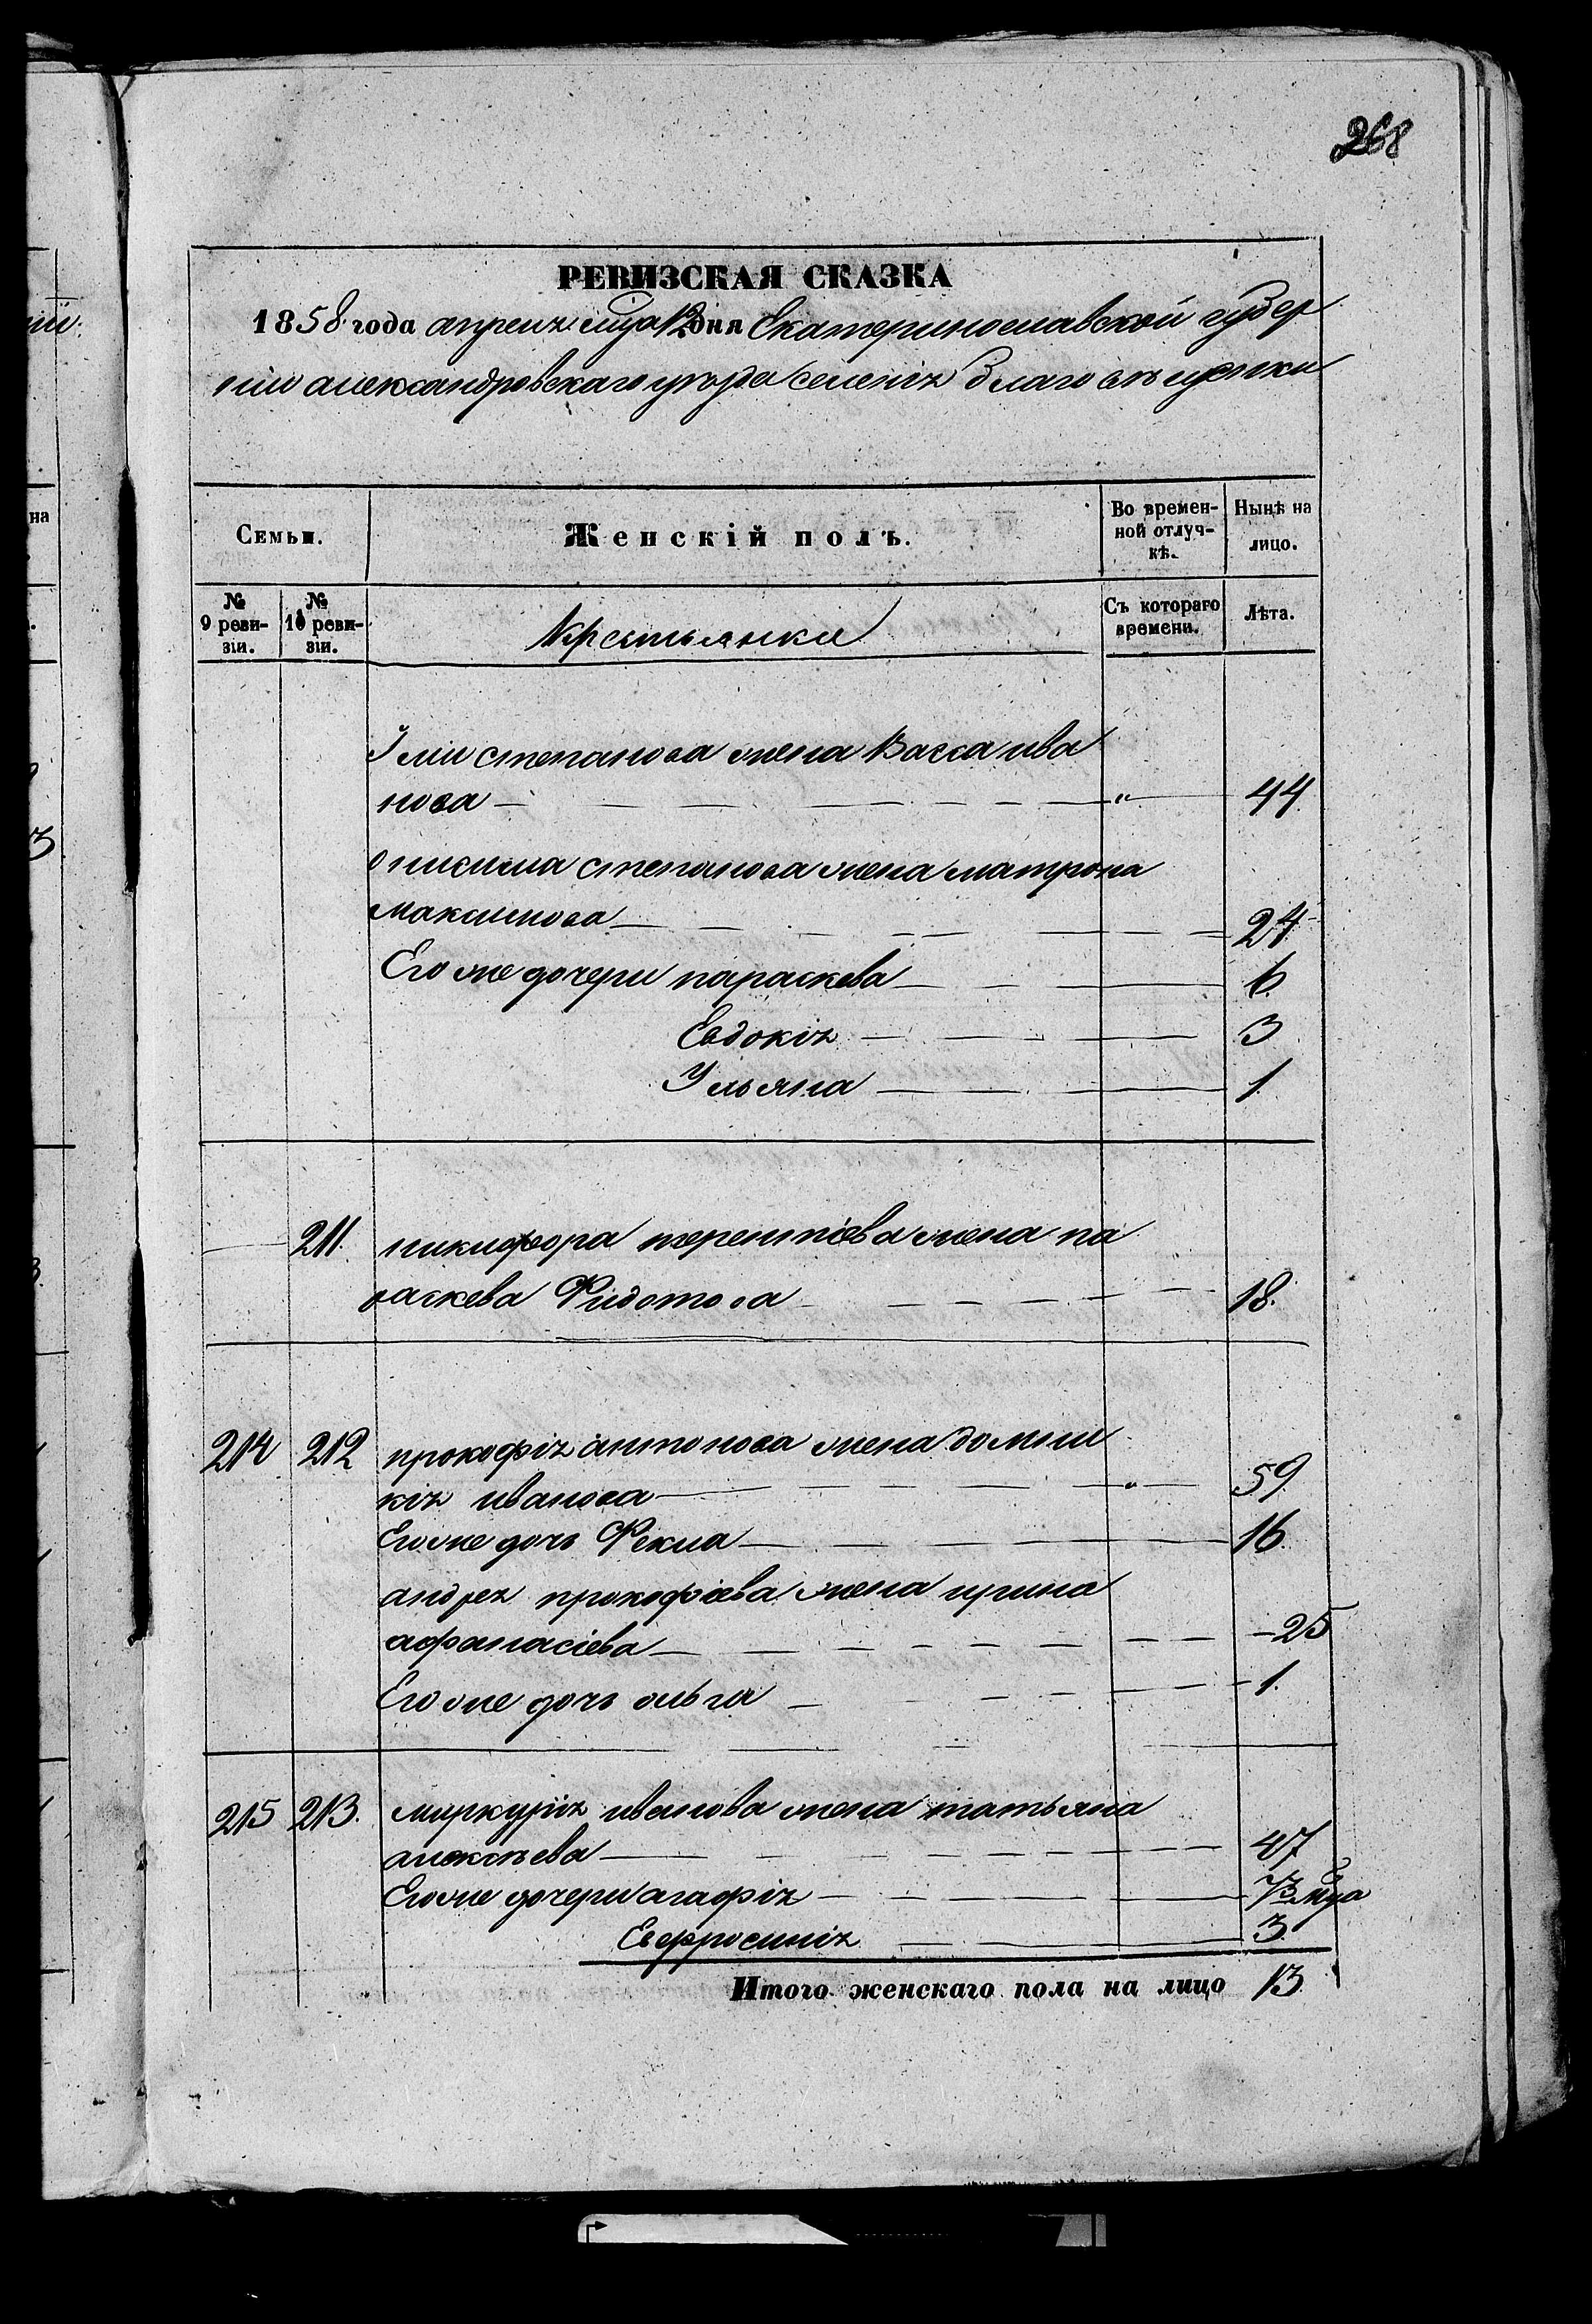 268
РЕВИЗСКАЯ СКАЗКА
1858 года апреля мца 12 дня Екатеринославской губер
ніи александровскаго уезда селенія благовѣщенки
Семьи.
Женскій полъ.
Во времен-
ной отлуч-
кѣ.
Нынѣ на
лицо.
№
9 реви-
зіи.
№
10 реви-
зіи.
Крестьянки
Съ котораго
времени.
Лѣта.
степанова жена Васса ива
нова 44
онисима степанова жена матрона
максимова 24
Его же дочери параскева 6
Евдокія 3
Ульяна 1
211. никифора терентіева жена па
раскева Фидотова 18.
214 212 прокофія антонова жена домни
кія иванова 59.
Его же дочь Фекла 16
андрея прокофіева жена ирина
афанасіева 25
Его же дочь ольга 1.
215 213. миркурія иванова жена татьяна
алексѣева 47
Его же дочери агафія мца
Евфросинія 3
Итого женскаго пола на лицо 13
на